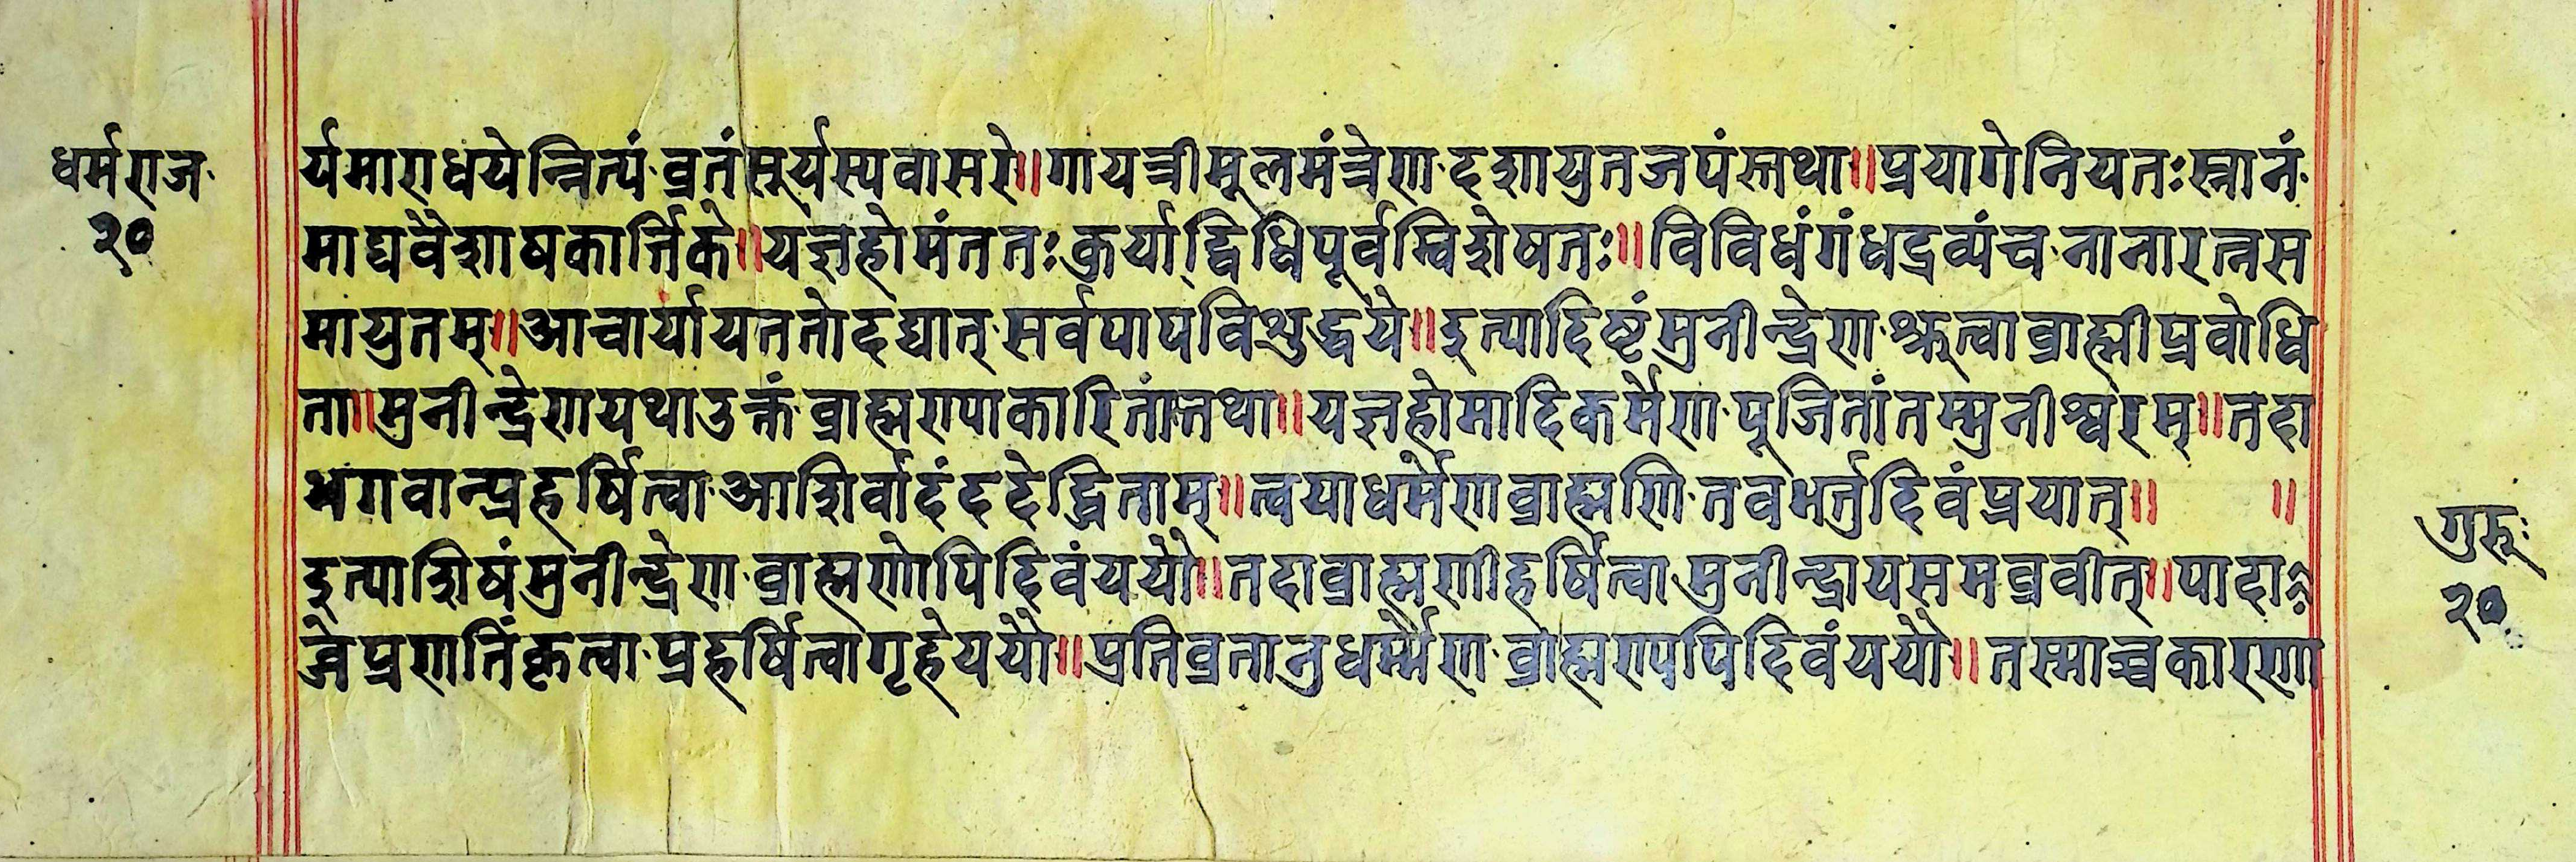 धर्मराज
२०
र्यमाराधयेन्नित्यं व्रतं सूर्यस्य वासरे॥ गायत्री मूलमंत्रेण दशायुतजपंस्तथा॥ प्रयागे नियतः स्नानं
माद्य वैशाष कार्तिके॥ यज्ञहोमं ततः कुर्याद्विधिपूर्वम्विशेषतः॥ विविधं गंधद्रव्यं च नानारत्नस
मायुतम्॥ आचार्याय ततो दद्यात् सर्वपापविशुद्धये॥ इत्यादिष्टं मुनीन्द्रेण श्रुत्वा ब्राह्मी प्रवोधि
ता॥ मुनीन्द्रेण यथा उक्तं ब्राह्मण्या कारितांतथा॥ यज्ञहोमादिकर्मेण पूजितां तम्मुनीश्वरम्॥ तदा
भगवान्प्रहर्षित्वा आशिर्वादं ददेद्धिताम्॥ त्वया धर्मेण ब्राह्मणि तव भर्तु दिवं प्रयात्॥ ॥
इत्याशिषं मुनीन्द्रेण ब्राह्मणोपि दिवं ययौ॥ तदा ब्राह्मणी हर्षित्वा मुनीन्द्राय समब्रवीत्॥ पादा
ब्जे प्रणातिं कृत्वा प्रहर्षित्वा गृहे ययौ॥ प्रतिव्रतानुधर्म्मेण ब्राह्मण्यपि दिवं ययौ॥ तस्माच्च कारणा
गुरूः
२०